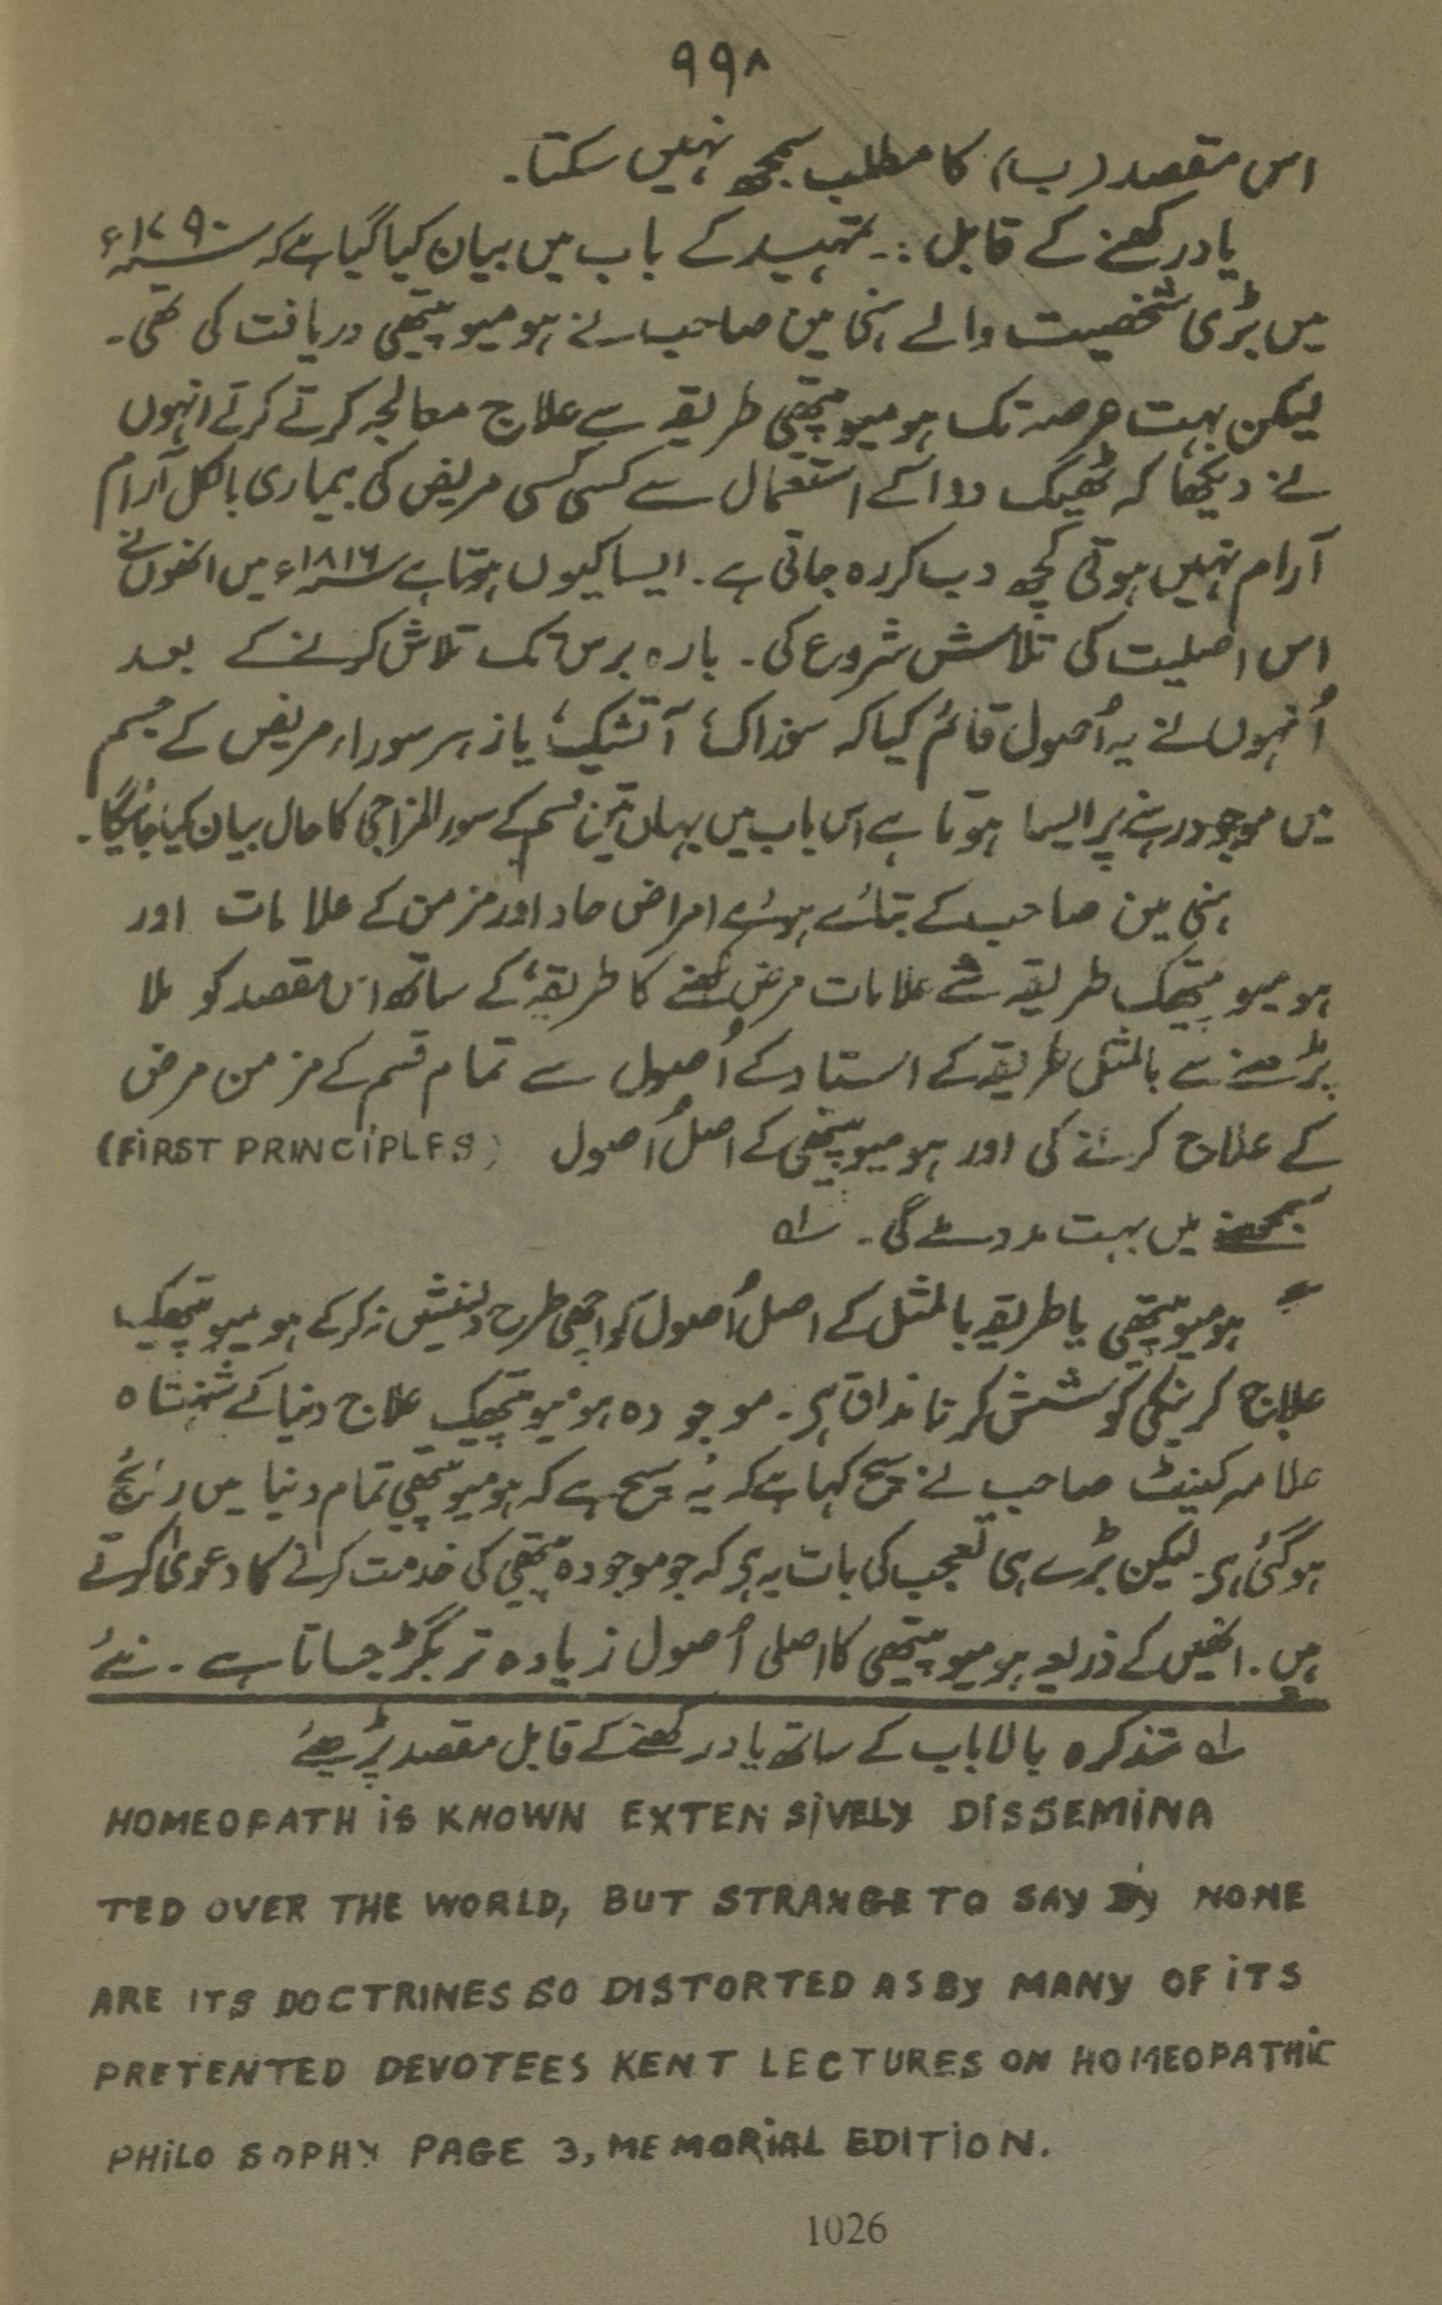 ۹۹۸
اس مقصد (ب) کا مطلب سمجھ نہیں سکتا۔
یاد رکھنے کے قابل :۔ تمہید کے باب میں بیان کیا گیا ہے کہ ۱۷۹۰ء
میں بڑی شخصیت والے ہنی مین صاحب نے ہومیوپیتھی دریافت کی تھی۔
لیکن بہت عرصہ تک ہومیوپیتھی طریقہ سے علاج معالجہ کرتے کرتے انہوں
نے دیکھا کہ ٹھیک دوا کے استعمال سے کسی کسی مریض کی بیماری بالکل آرام
آرام نہیں ہوتی کچھ دب کر رہ جاتی ہے۔ ایسا کیوں ہوتا ہے ۱۸۱۶ء میں انھوں نے
اس اصلیت کی تلاش شروع کی۔ بارہ برس تک تلاش کرنے کے بعد
اُنہوں نے یہ اُصول قائم کیا کہ سوزاک، آتشک، یا زہر سورا، مریض کے جسم
میں موجود رہنے پر ایسا ہوتا ہے اس باب میں یہاں تین قسم کے سور المزاجی کا حال بیان کیا جائیگا۔
ہنی مین صاحب کے بتائے ہوئے امراض حاد اور مزمن کے علامات اور
ہومیوپیتھک طریقہ سے علامات مرض لکھنے کا طریقہ، کے ساتھ اس مقصد کو ملا
پڑھنے سے بالمثل طریقہ کے استاد کے اُصول سے تمام قسم کے مزمن مرض
کے علاج کرنے کی اور ہومیوپیتھی کے اصل اُصول (FIRST PRINCIPLES)
سمجھنے میں بہت مدد ملے گی۔ ؎۱
ہومیوپیتھی یا طریقہ بالمثل کے اصل اُصول کو اچھی طرح دلنشیں نہ کرکے ہومیوپیتھک
علاج کرنیکی کوشش کرنا مذاق ہے۔ موجودہ ہومیوپیتھک علاج دنیا کے شہنشاہ
علامہ کینٹ صاحب نے سچ کہا ہے کہ یہ سچ ہے کہ ہومیوپیتھی تمام دنیا میں رائج
ہوگئی ہے۔ لیکن بڑے ہی تعجب کی بات یہ ہے کہ جو موجودہ پیتھی کی خدمت کرنے کا دعویٰ کرتے
ہیں۔ انھیں کے ذریعہ ہومیوپیتھی کا اصلی اُصول زیادہ تر بگڑ جاتا ہے۔ نئے
؎۱ تذکرہ بالا باب کے ساتھ یاد رکھنے کے قابل مقصد پڑھیئے
HOMEOPATH iS KNOWN EXTENSiVELY DiSSEMiNA
TED OVER THE WORLD, BUT STRANGE TO SAY By NONE
ARE ITS DOCTRINES SO DISTORTED AS By MANY OF iTS
PRETENTED DEVOTEES KENT LECTURES ON HOMEOPATHiC
PHiLO SOPHY PAGE 3, MEMORiAL EDITiON.
1026